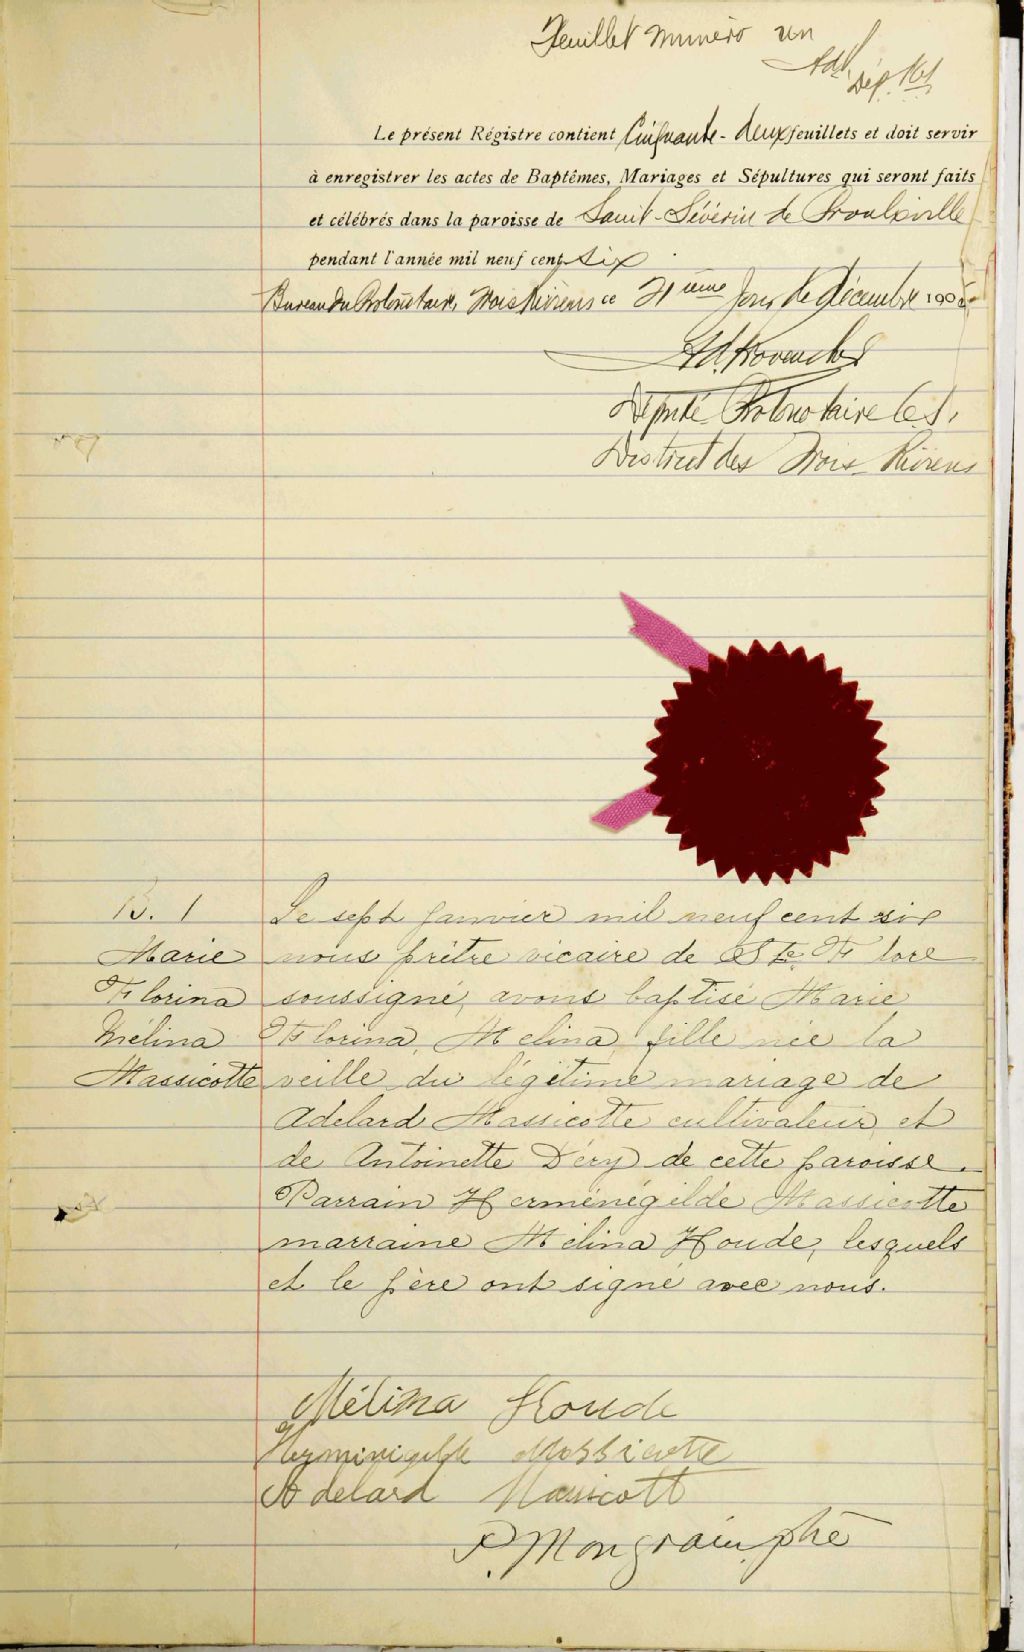 Feuillet numéro un
Adp.
Dép. P.C.S.
Le présent Régistre contient Cinquante-deux feuillets et doit servir
à enregistrer les actes de Baptêmes, Mariages et Sépultures qui seront faits
et célébrés dans la paroisse de Saint-Sévérin de Proulxville
pendant l'année mil neuf cent six
Bureau du Protonotaire, Trois Rivières ce 21ième Jour de Décembre 190
Ad. Provencher
Député Protonotaire C.S.
District des Trois-Rivières
B. 1
Marie
Florina
Mélina
Massicotte
Le sept janvier mil neuf cent six
nous prêtre vicaire de Ste. Flore
soussigné, avons baptisé Marie
Florina, Melina, fille née la
veille du légitime mariage de
Adelard Massicotte cultivateur, et
de Antoinette Déry de cette paroisse.
Parrain Herménégilde Massicotte
marraine Mélina Houde, lesquels
et le père ont signé avec nous.
Mélina Houde
Herminigilde Massicotte
Adelard Massicott
P. Mongrain, ptre